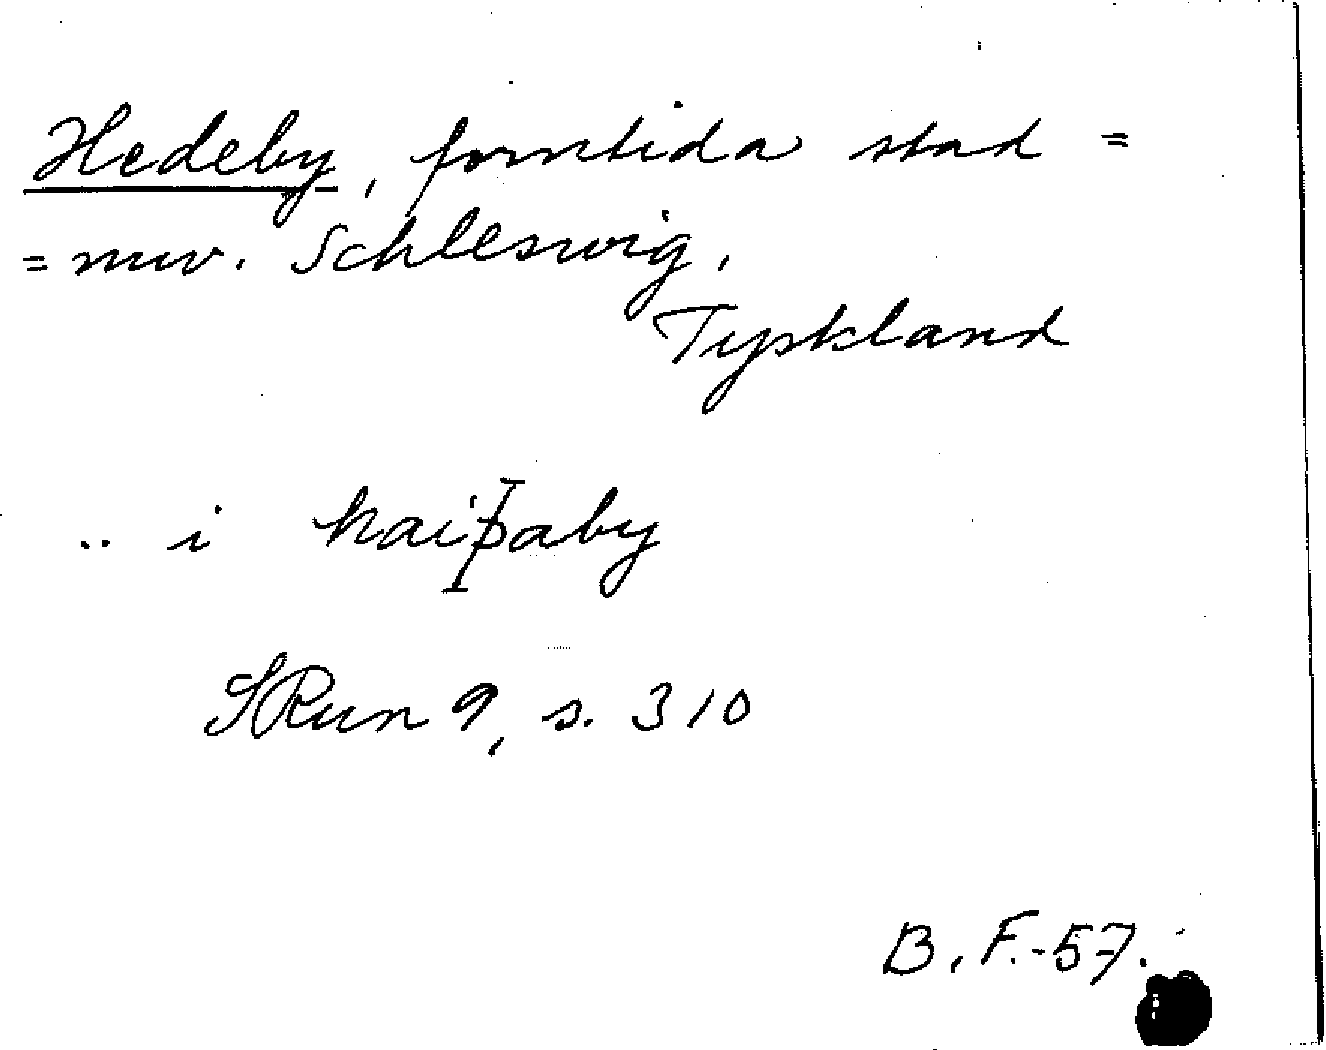 Hedeby, forntida stad =
= nuv. Schleswig,
Tyskland
.. i haiþaby
SRun 9, s. 310
B. F. -57.